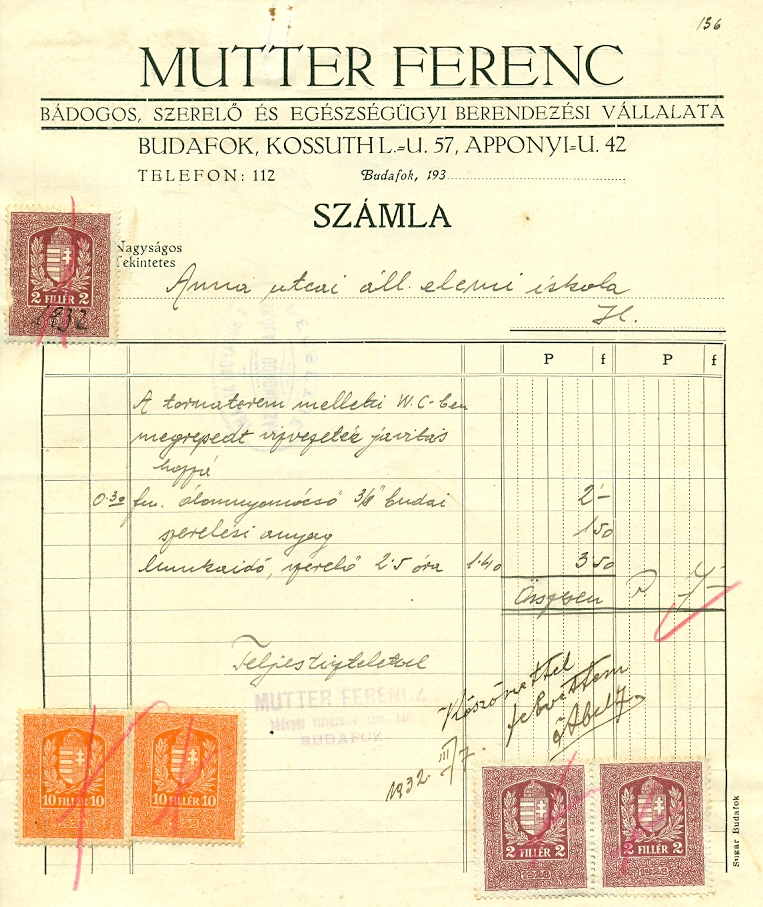 136
MUTTER FERENC
BÁDOGOS, SZERELŐ ÉS EGÉSZSÉGÜGYI BERENDEZÉSI VÁLLALATA
BUDAFOK, KOSSUTH L.=U. 57, APPONYI=U. 42
TELEFON: 112 Budafok, 193
SZÁMLA
Nagyságos
Tekintetes
2 FILLÉR 2
1932
Anna utcai áll. elemi iskola
H.
P f P f
A tornaterem melletti W.C-ben
megrepedt vízvezeték javitás
hozzá
0.30 fm. ólomnyomócső 3/8" budai 2-
szerelési anyag 1.50
munkaidő, szerelő 2.5 óra 1.40 3.50
Összesen P. 7.-
Teljes tisztelettel
MUTTER FERENC
BUDAFOK
Köszönettel
felvettem
1932. III/7.
10 FILLÉR 10
10 FILLÉR 10
2 FILLÉR 2
1928
2 FILLÉR 2
1928
Sugar Budafok